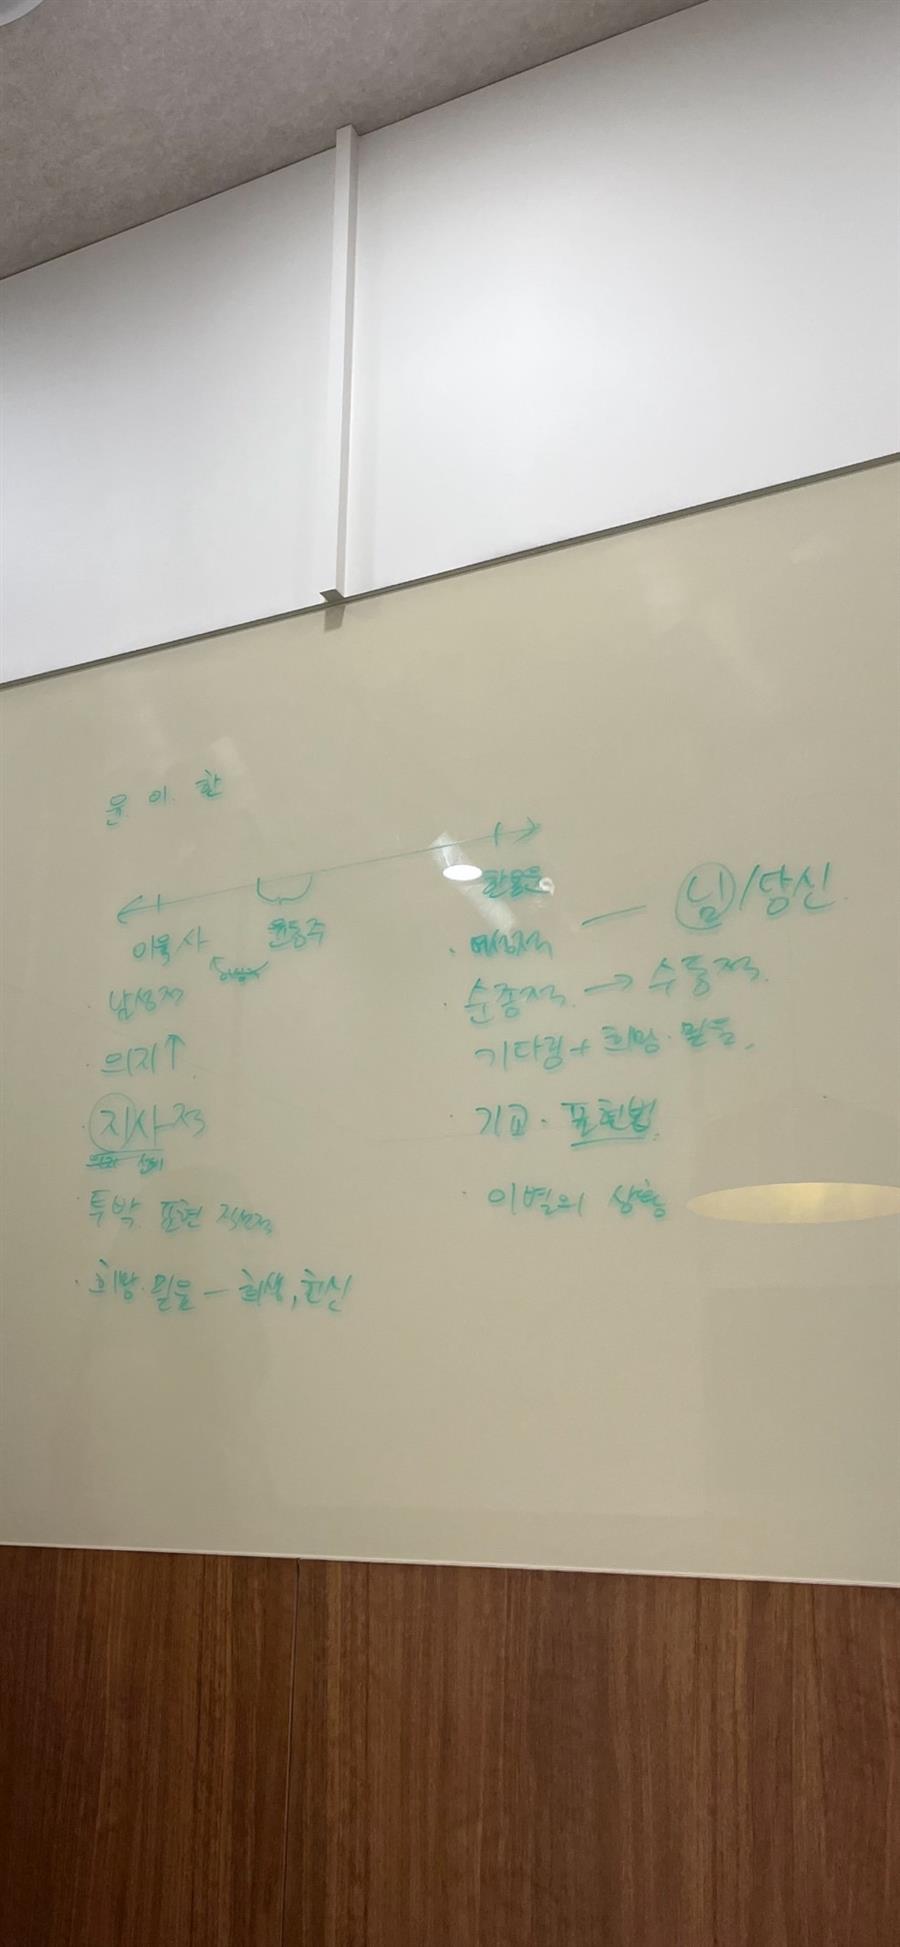 윤. 이. 한
이육사
윤동주
한용운
· 남성적
· 의지↑
· 지사적
투박 표현 직설적
· 희망·믿음 – 희생, 헌신
· 여성적 — 님/당신
· 순종적 → 수동적
기다림 + 희망·믿음
· 기교·표현법
· 이별의 상황